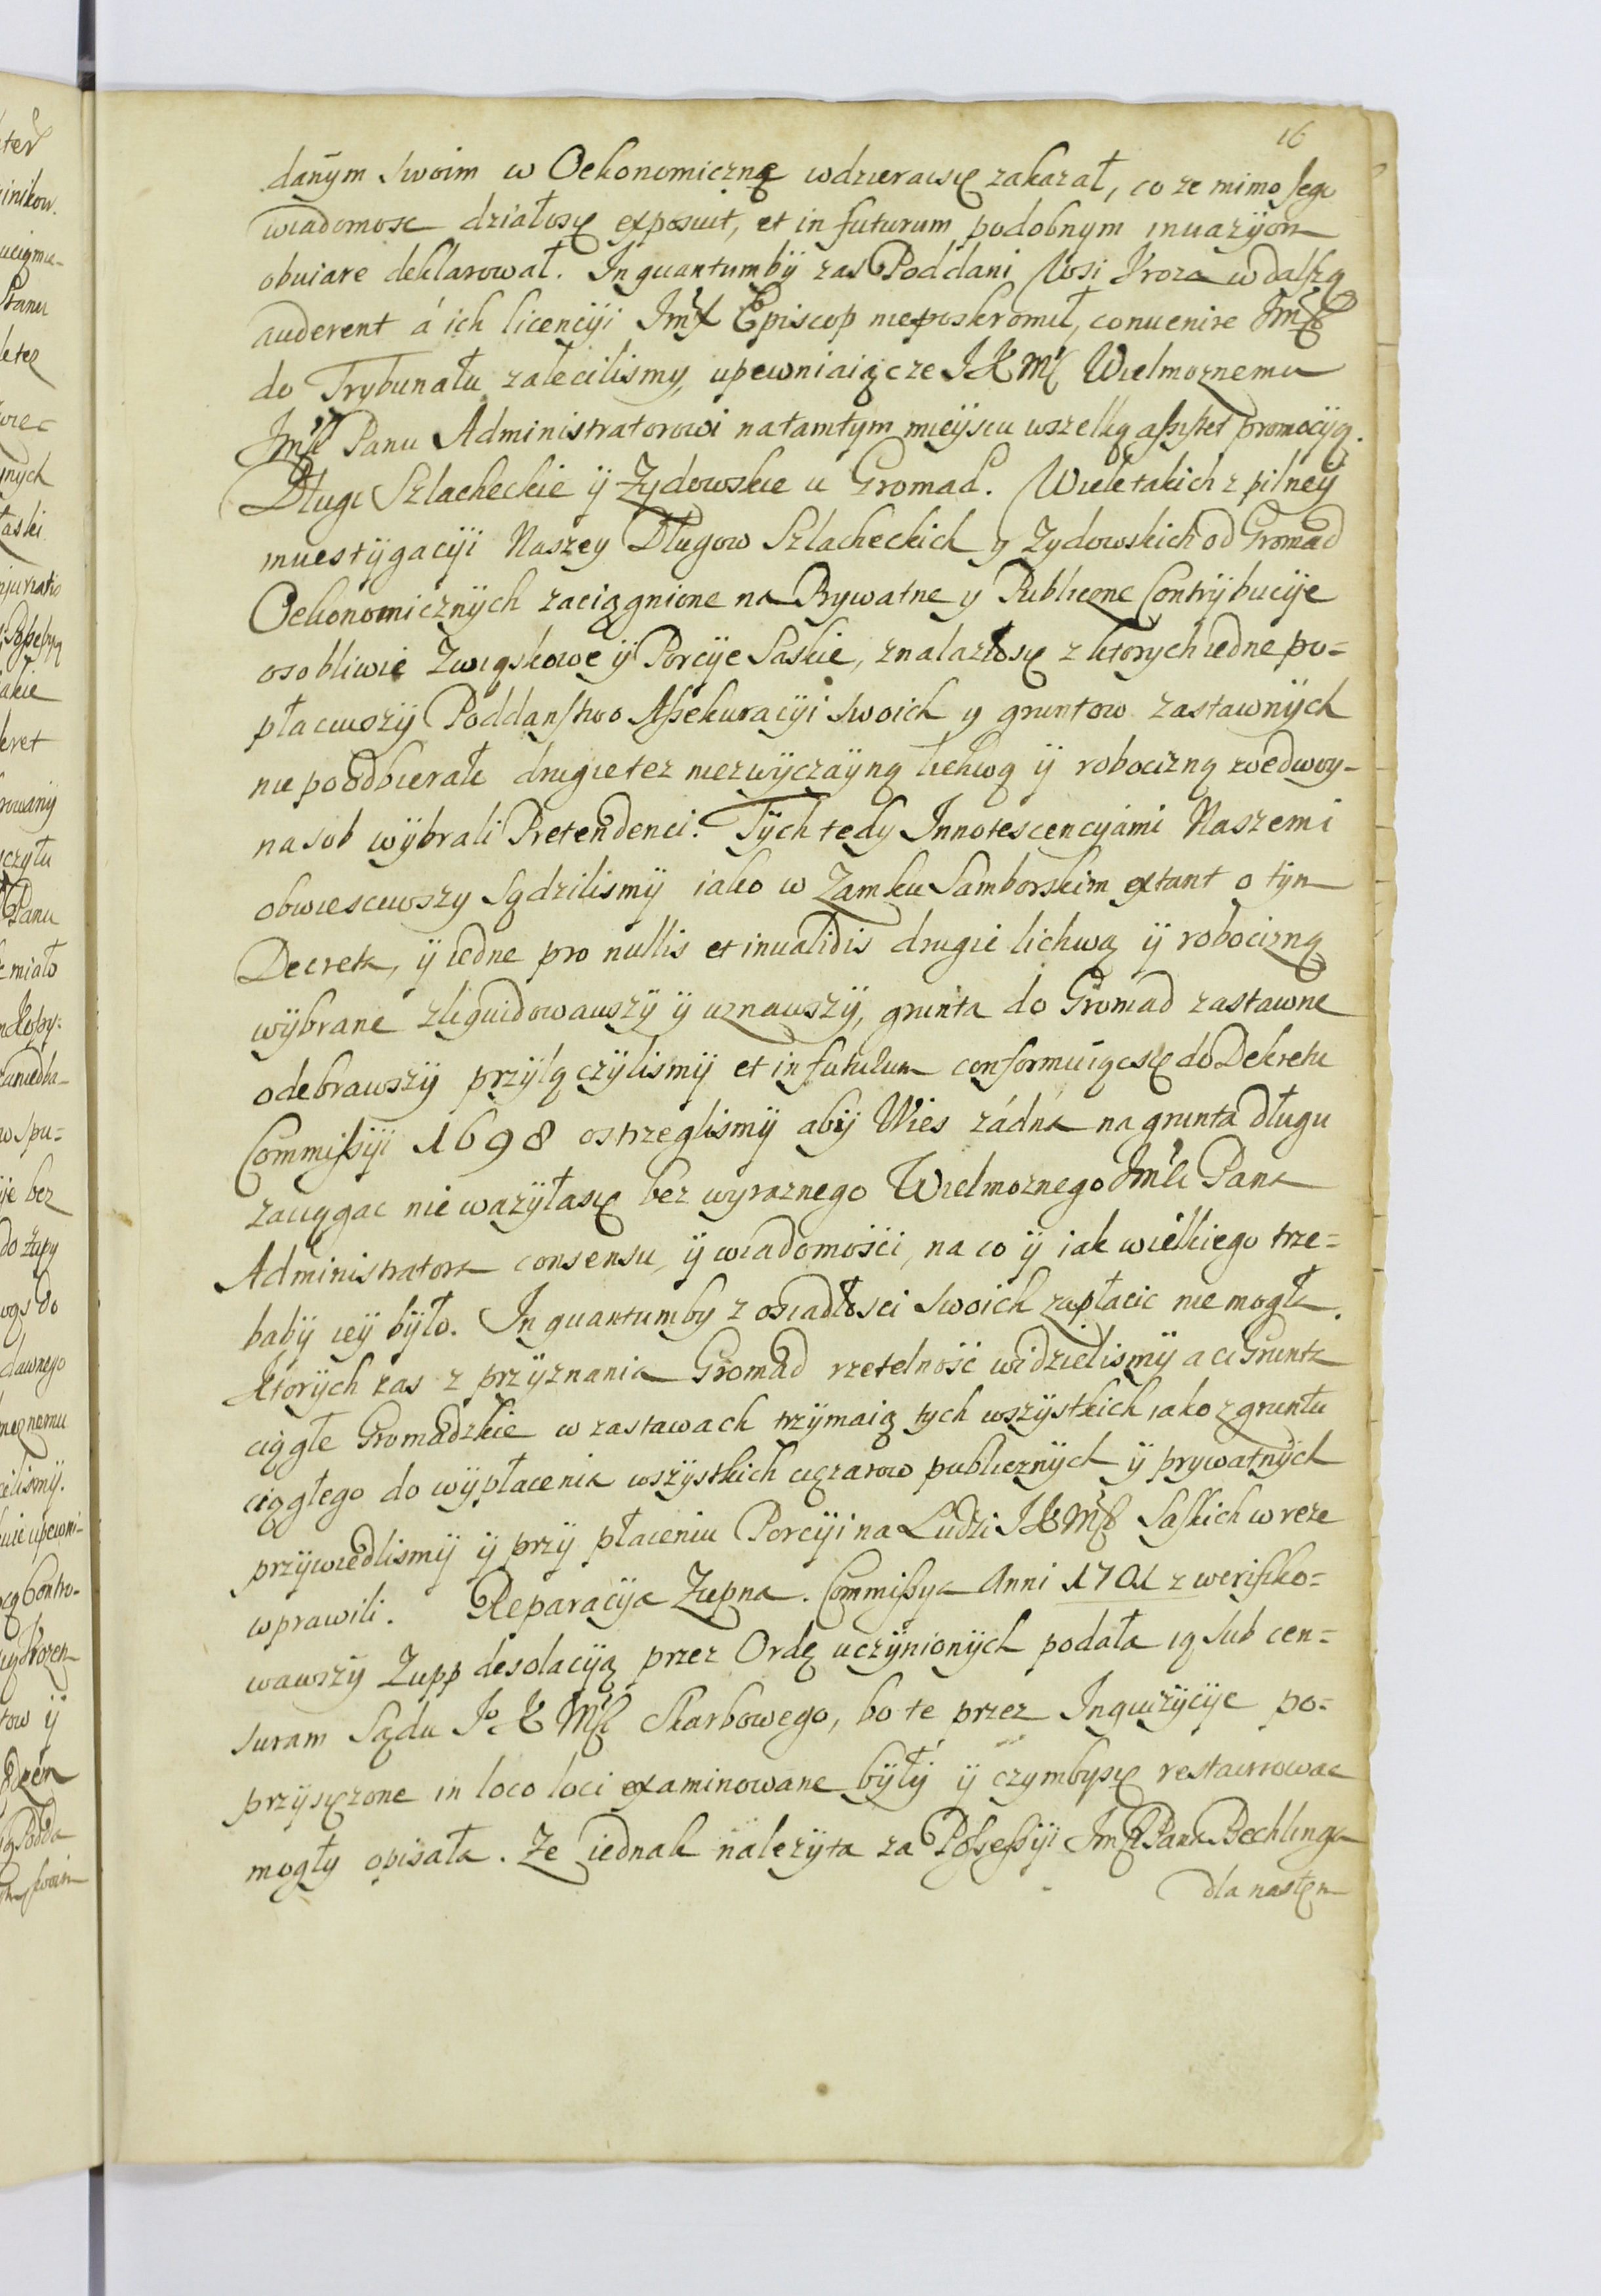 16
dañym swoim w Oekonomiczną wdzieraćsię zakazał, co ze mimo Jego
wiadomosc działosię exposuit, et in futurum podobnym inwazyom
obuiare deklarował. Inquantumbÿ zas Poddani Wsi Proza w dalszą
auderent á ich licencÿi Imx Episcop nieposkromił, conuenire Imści
do Trybunału zalecilismy, upewniaiącze JKMści Wielmoznemu
Imści Panu Administratorowi natamtym mieyscu wszelką assistet promocÿą.
Długi Szlacheckie ÿ Zydowskie u Gromad. Wiele takich z pilneÿ
inuestÿgacÿi Naszey Długow Szlacheckich y Zydowskich od Gromad
Oekonomicznÿch zaciągnione na Prywatne y Publiczne Contrÿbucÿe
osobliwie Zwiąskowe ÿ Porcÿe Saskie, znalazłosię z ktorych iedne po=
płaciwszÿ Poddanstwo Assekuracÿi swoich y gruntow zastawnÿch
nie poodbierałi drugie tez niezwÿczaÿną lichwą ÿ robocizną wedwoy-
nasob wÿbrali Pretendenci. Tÿch tedy Innotescencyámi Naszemi
obwiesciwszy Sądzilismÿ iako w Zamku Samborskim extant o tÿm
Decreta, ÿ iedne pro nullis et inualidis drugie lichwą ÿ robocizną
wÿbrane zliquidowawszÿ ÿ uznawszÿ, grunta do Gromad zastawne
odebrawszÿ przÿłączÿlismÿ et in futurum conformuiącsię do Dekretu
Commissÿi 1698 ostrzeglismÿ abÿ Wies zádná na grunta długu
zaciągac nie wazÿłasię bez wyraznego Wielmoznego Imści Pana
Administratora consensu, ÿ wiadomości, na co ÿ iak wielkiego trze=
babÿ ieÿ bÿło. Inquantumby z osiadłosci swoich zapłacic nie mogła.
Ktorÿch zas z przÿznania Gromad rzetelność widzielismÿ a ci Grunta
ciągłe Gromadzkie w zastawach trzÿmaią tych wszÿstkich iako z gruntu
ciągłego do wÿpłacenia wszÿstkich cięzarow publicznÿch ÿ prywatnÿch
przÿwiedlismÿ ÿ przÿ płaceniu Porcÿi na Ludzi JKMści Saskich w reze
wprawili. Reparacÿa Zupna. Commissya Anni 1701 zwerifiko=
wawszÿ Zupp desolacÿą przez Ordę uczÿnionÿch podała ią sub cen=
suram Sądu Jo K Mści Skarbowego, bo te przez Inquizÿcÿe po=
przÿsięzone in loco loci examinowane bÿłÿ ÿ czymbysię restaurowac
mogły opisała. Ze iednak nalezÿta za Possessÿi Imści Pana Bechlinga
dla nastęn